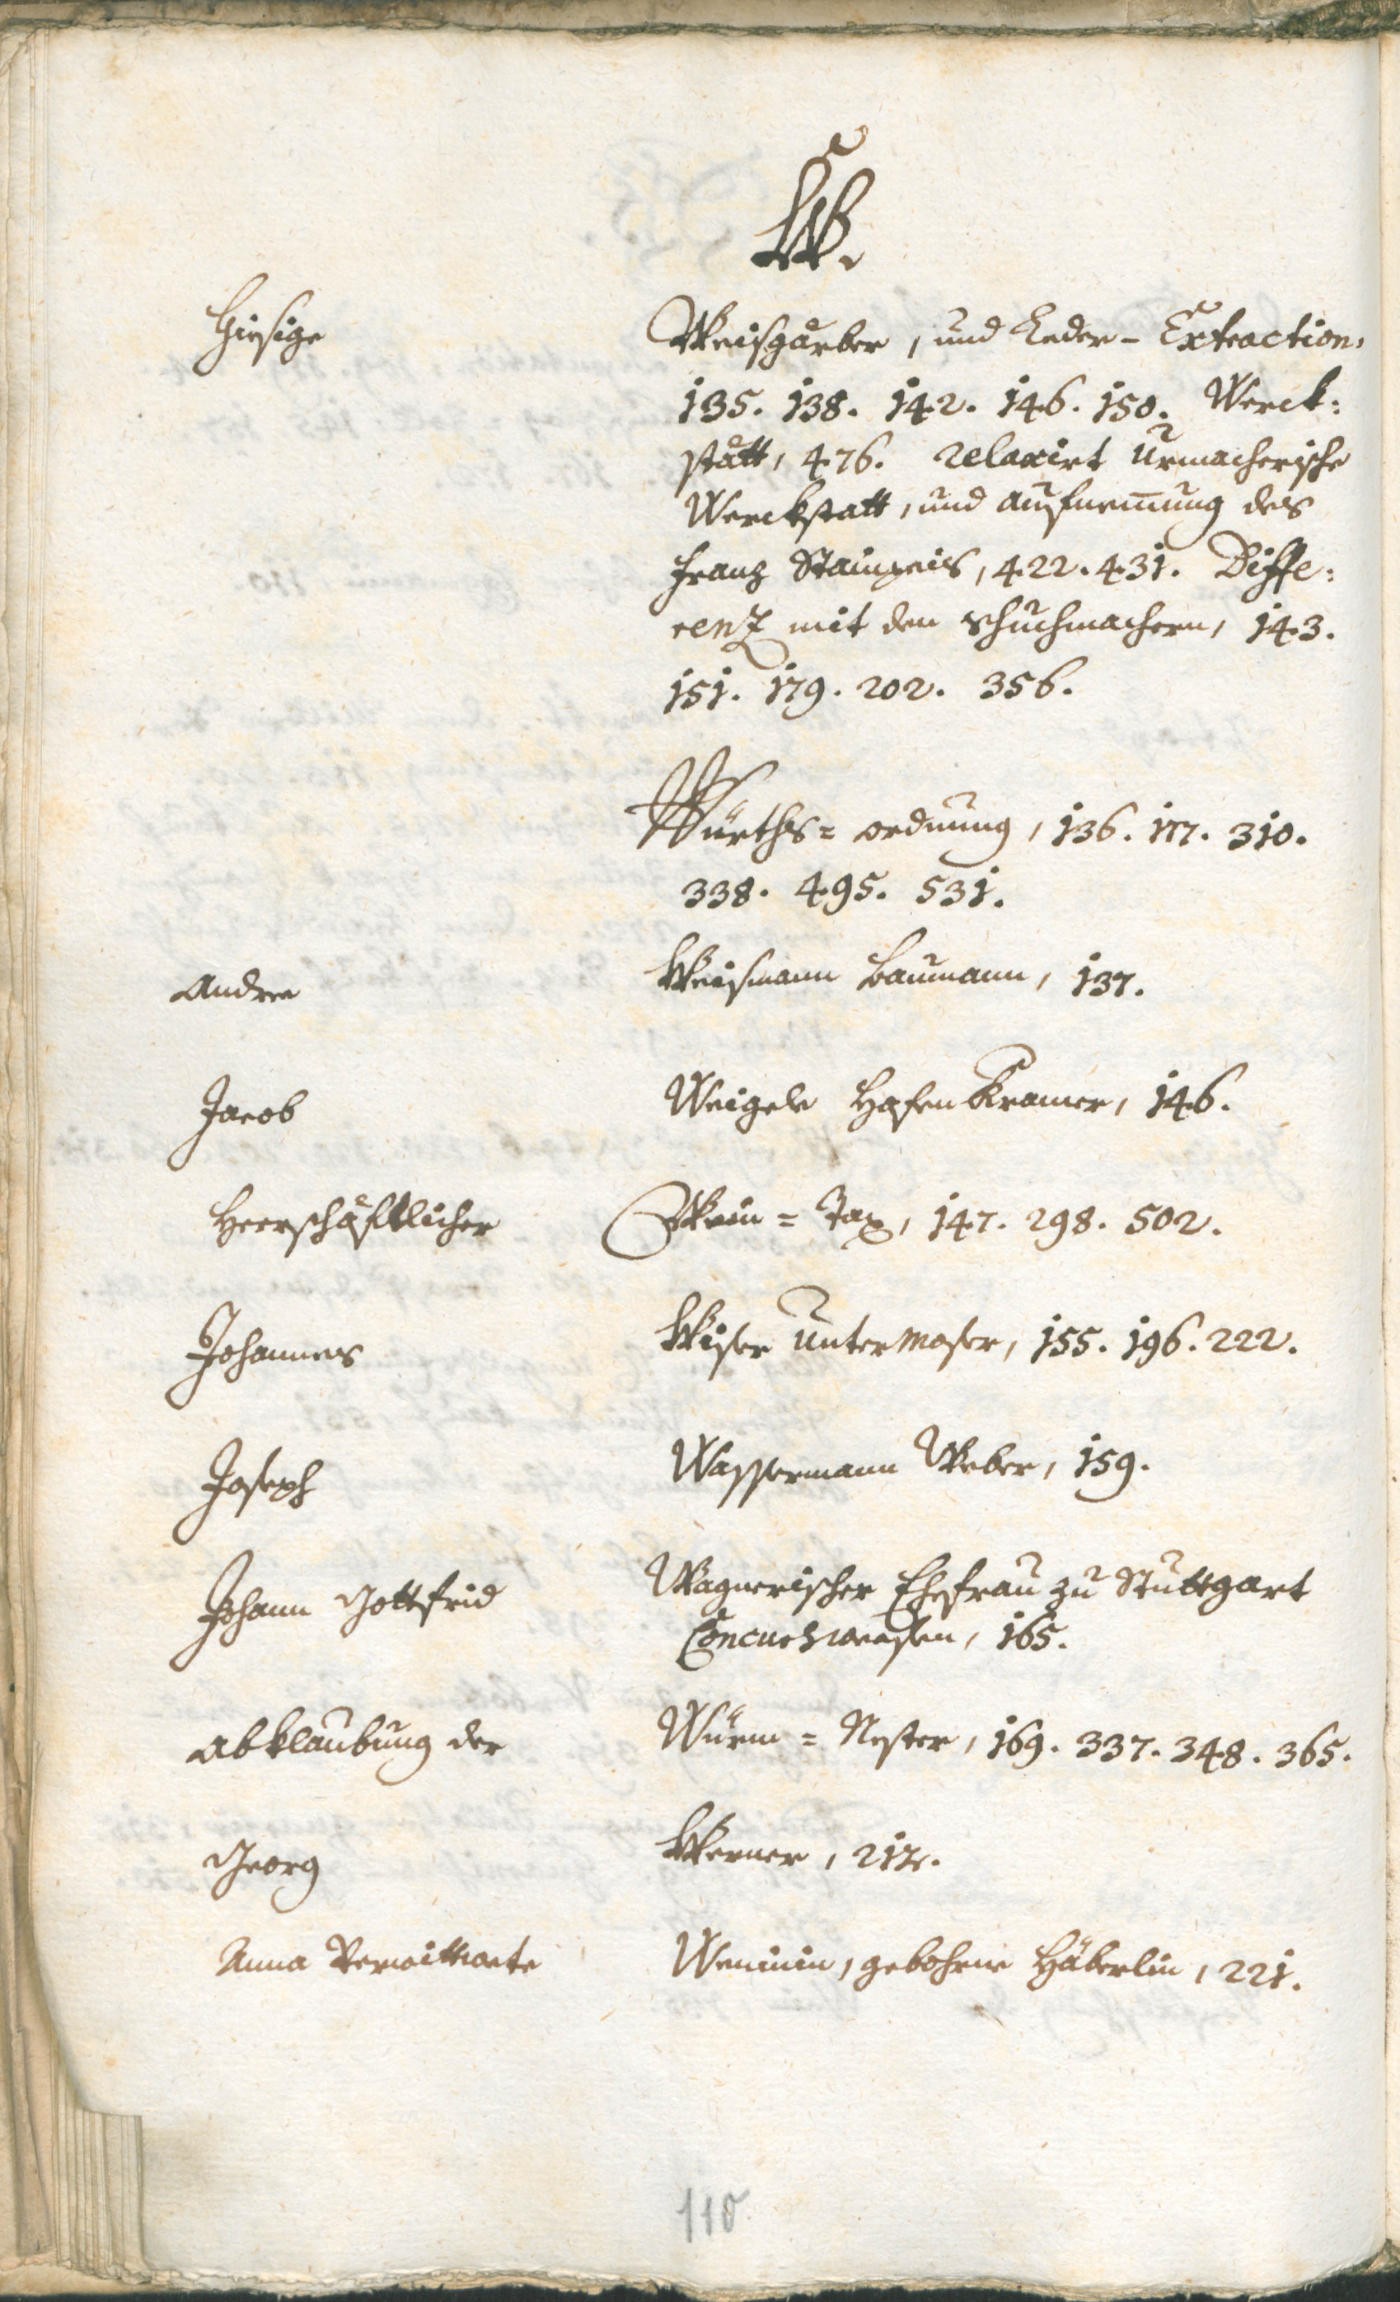 W.
Hiesige Weisgärber, und Leder-Extraction,
135. 138. 142. 146. 150. Werck:
stätt, 476. relaxirt Urmacherische
Werckstatt, und Aufnem̅ung des
Franz 422. 431. Diffe:
renz mit den Schuhmachern, 143.
151. 179. 202. 356.
Würths= ordnung, 136. 177. 310.
338. 495. 531.
Andree Weismann Baumann, 137.
Jacob Weigele Hafen Kramer, 146.
Herrschäfftlicher Wein = Tax, 147. 298. 502.
Johannes Wiser Untermoser, 155. 196. 222.
Joseph Wassermann Weber, 159.
Johann Gottfrid Wagnerischer Ehefrau zu Stuttgart
Concurswessen, 165.
Abklaubung der Würm = Nester, 169. 337. 348. 365.
Georg Werner,
Anna gebohrne Häberlin, 221.
110